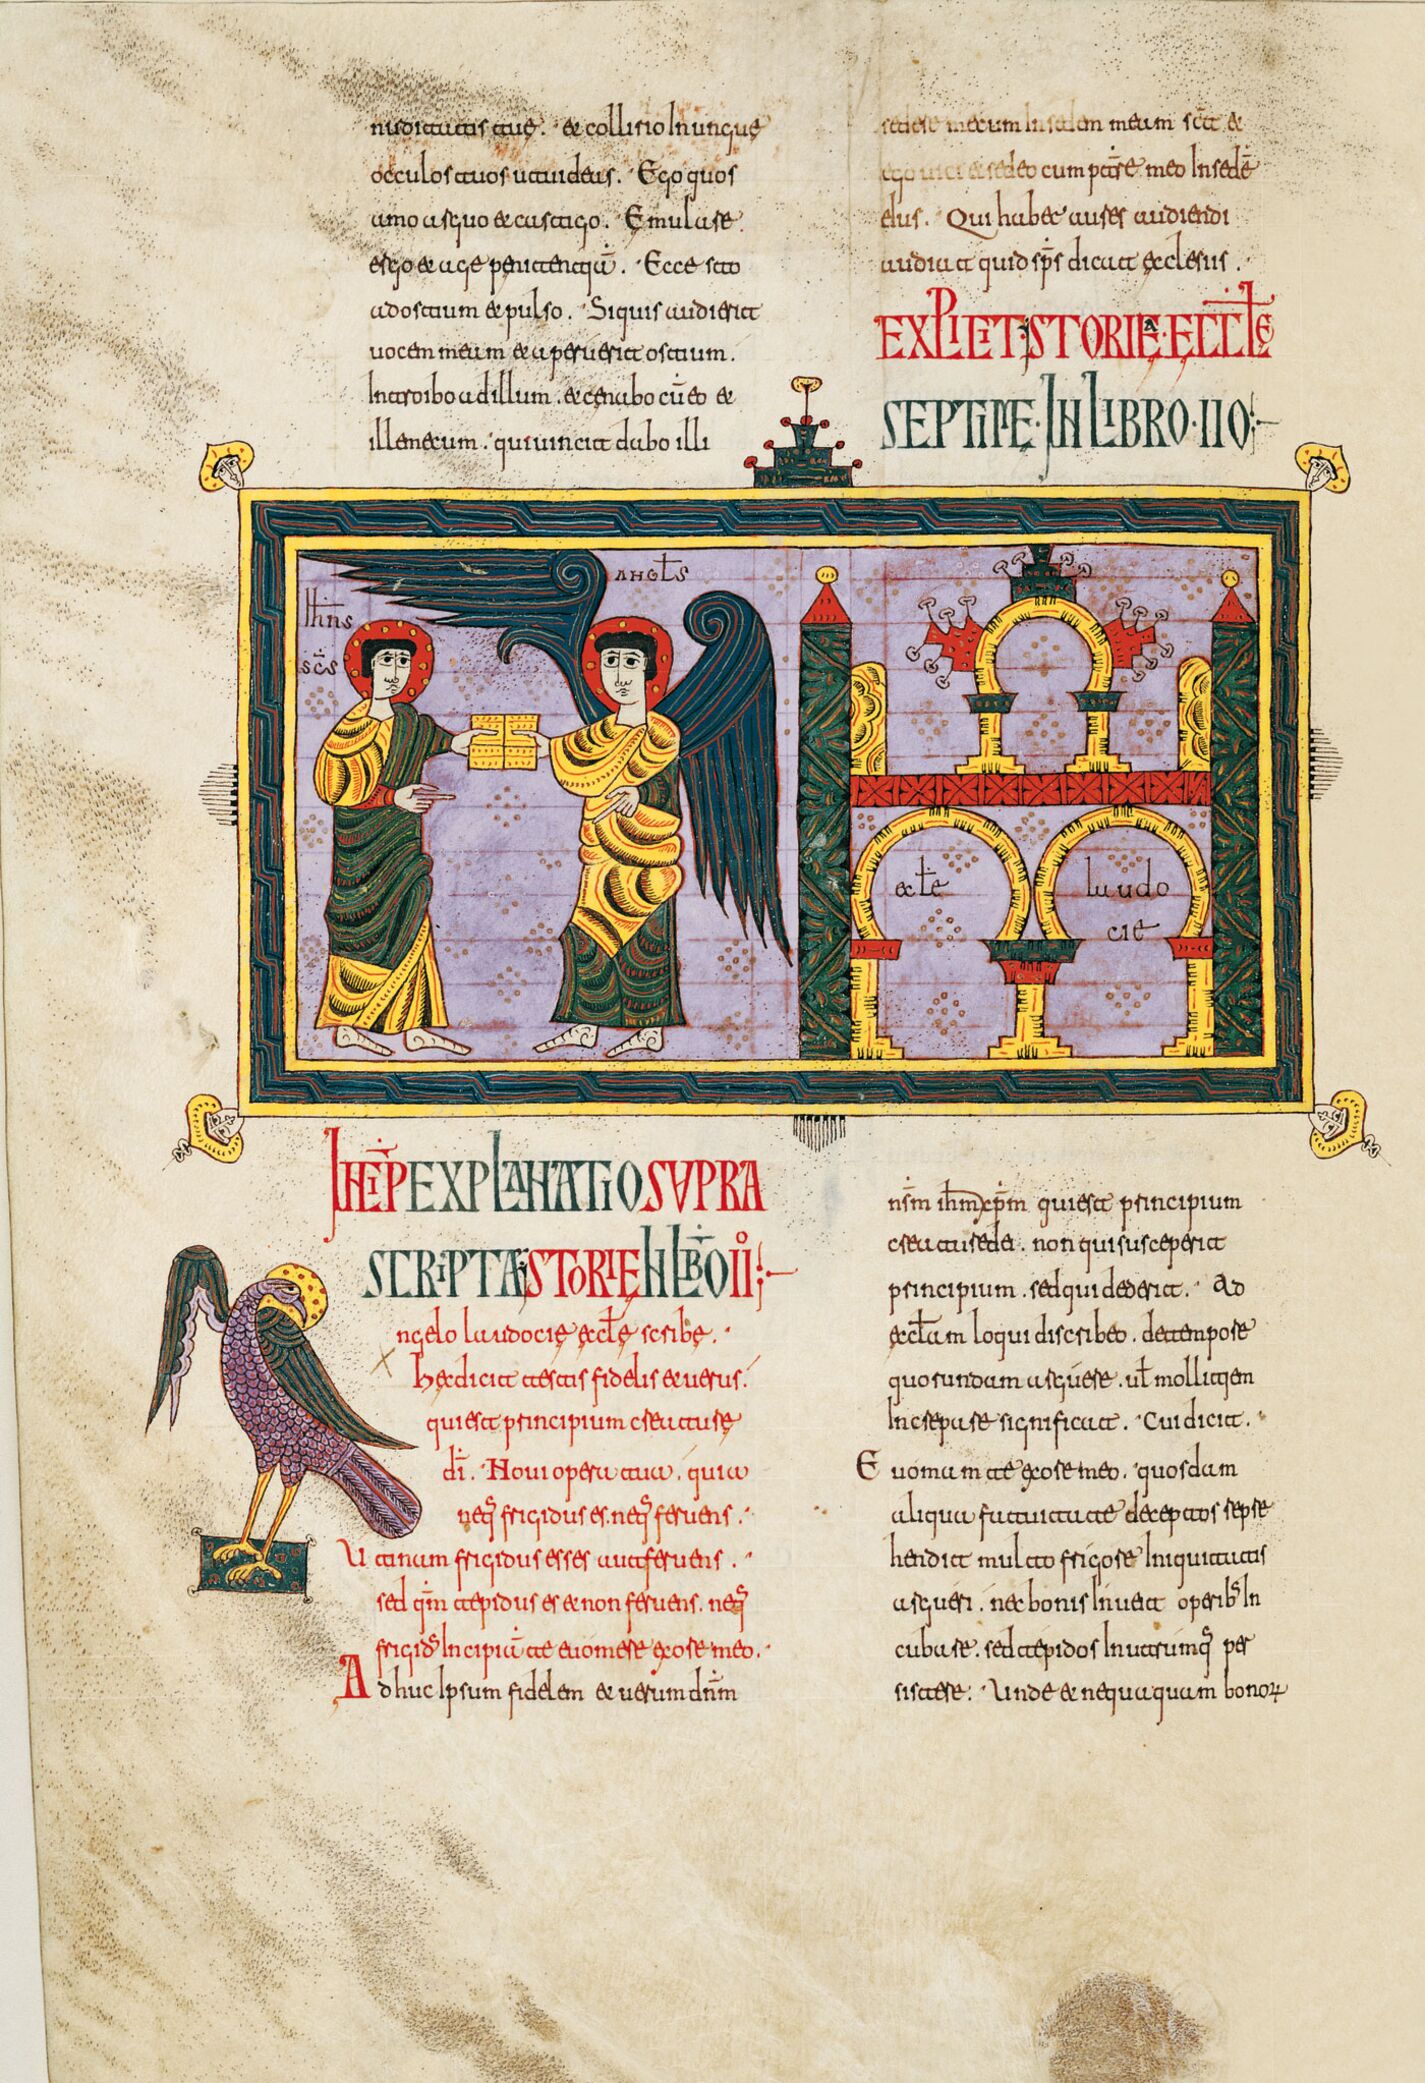 nuditatis tuę. & collirio Inungue
occulos tuos ut uideas. Ego quos
amo arguo & castigo. Emulare
ergo & age penitentiā. Ecce sto
ad ostium & pulso. Siquis audierit
uocem meam & aperuerit ostium.
Introibo ad illum. & cenabo cū eo &
ille mecum. qui uincit dabo illi
sedere mecum In solem meum sc̄t &
ego uici & sedeo cum patre meo In sede
eius. Qui habet aures audiendi
audiat quid sp̄s dicat ęclesiis.
EXPLICIT STORIĘ ECCLĘ
SEPTIME IN LIBRO IIO
Ihns
scs
angls
eclę
laudo
cię
INCIP EXPLANATIO SUPRA
SCRIPTAE STORIĘ IN LBO II
ngelo laudocię ęclę scribe.
Hęc dicit testis fidelis & uerus.
qui est principium creature
dī. Noui opera tua. quia
neq frigidus es. neq feruens.
Utinam frigidus esses aut feruens.
sed qm̄ tepidus es & non feruens. neq
frigid Incipiā te euomere ex ore meo.
Adhuc Ipsum fidelem & uerum dnm̄
nsm̄ ihm xpm̄ qui est principium
creature dei. non qui susceperit
principium. sed qui dederit. Ad
ęclam loqui discribeo. de tempore
quorundam arguere. ul mollitiem
Increpare significat. Cui dicit.
Euomam te ex ore meo. quosdam
aliqua fatuitate deceptos repre
hendit multo frigore Iniquitatis
argueri. nec bonis Inuect operib In
cubare. sed tepidos In utrumq per
sistere. Unde & nequaquam bonor